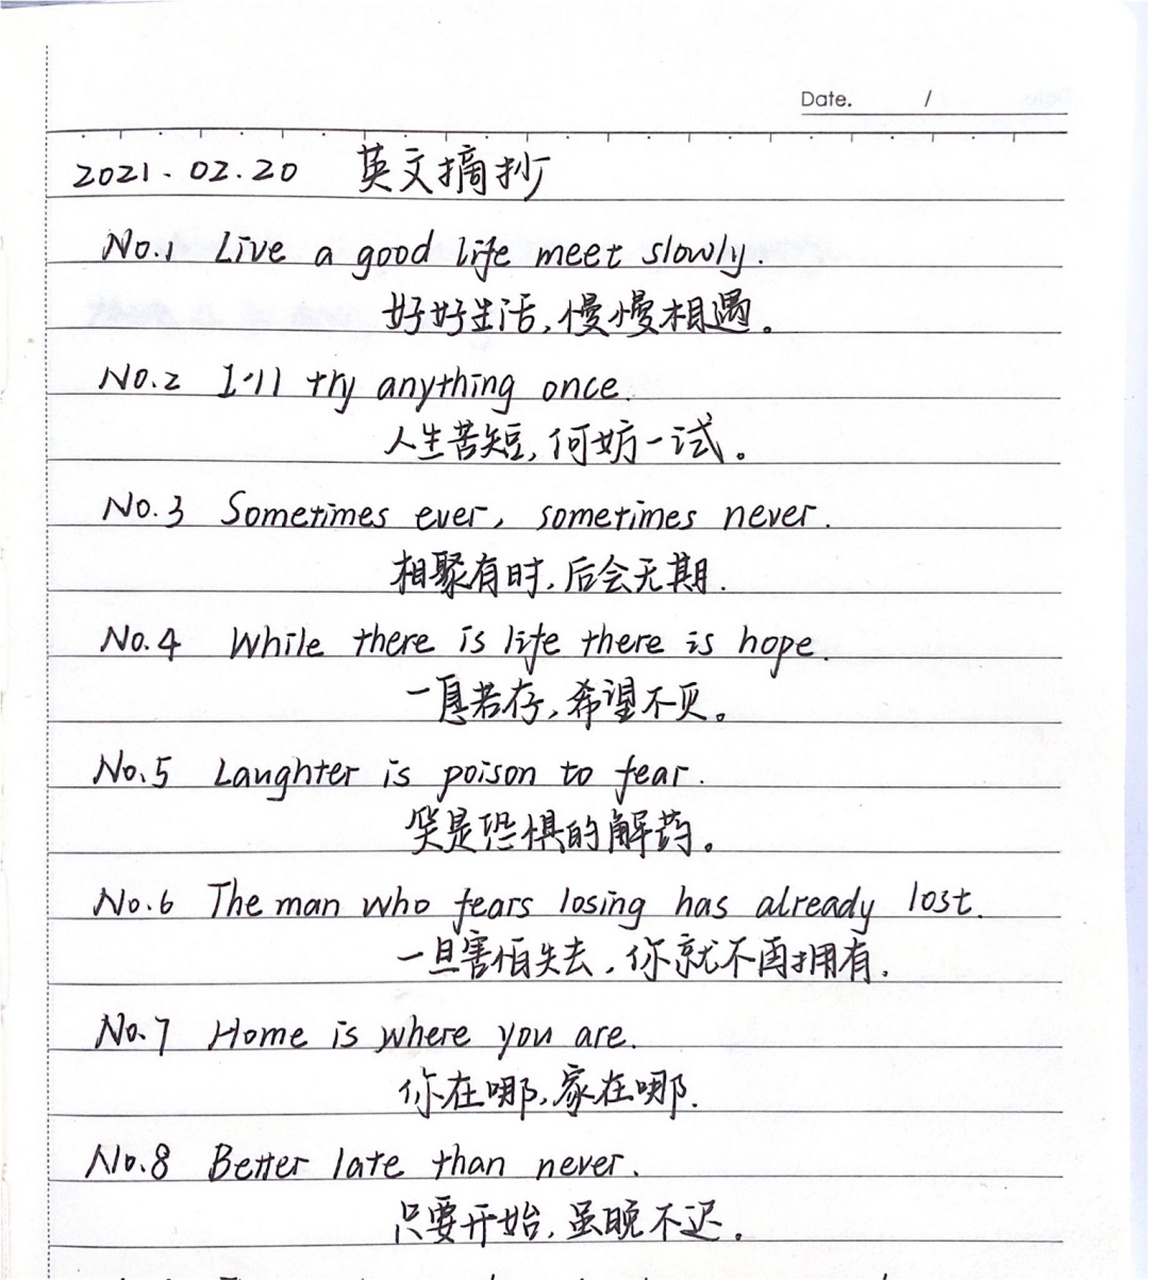 Date. /
2021.02.20 英文摘抄
No.1 Live a good life meet slowly.
好好生活,慢慢相遇。
No.2 I'll try anything once.
人生苦短,何妨一试。
No.3 Sometimes ever, sometimes never.
相聚有时,后会无期.
No.4 While there is life there is hope.
一息若存,希望不灭。
No.5 Laughter is poison to fear.
笑是恐惧的解药。
No.6 The man who fears losing has already lost.
一旦害怕失去,你就不再拥有.
No.7 Home is where you are.
你在哪,家在哪.
No.8 Better late than never.
只要开始,虽晚不迟。